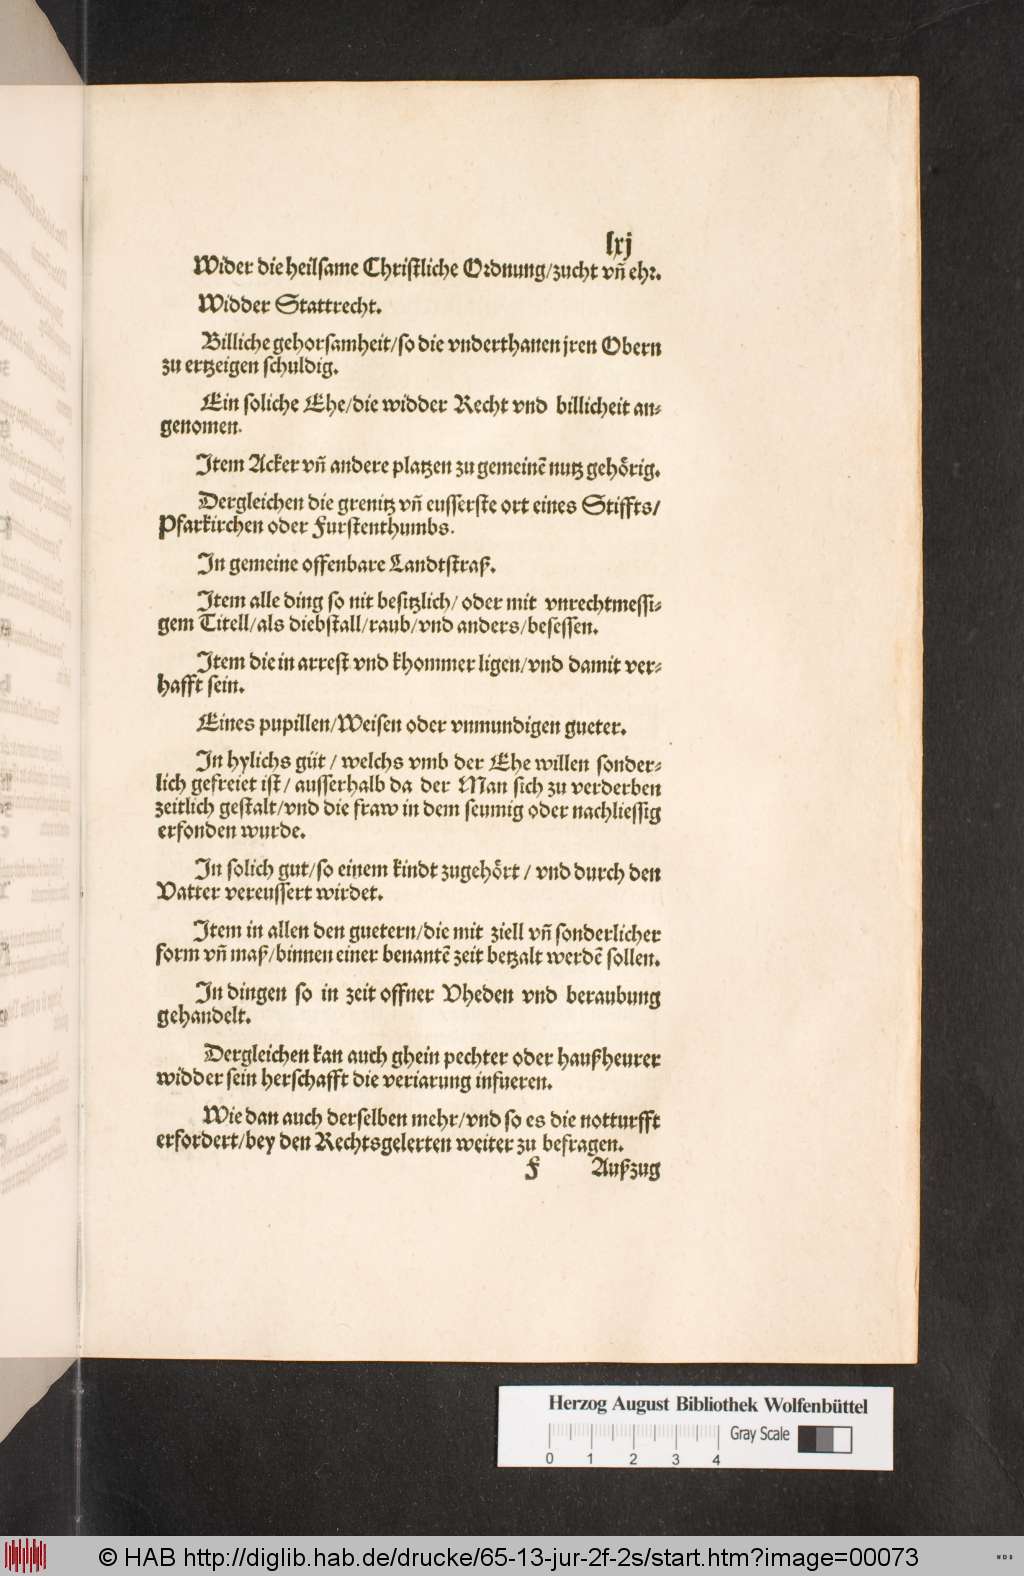 lxj
Wider die heilsame Christliche Ordnung/zucht vñ ehr.
Widder Stattrecht.
Billiche gehorsamheit/so die vnderthanen jren Obern
zu ertzeigen schuldig.
Ein soliche Ehe/die widder Recht vnd billicheit an-
genomen.
Item Acker vñ andere platzen zu gemeinẽ nutz gehörig.
Dergleichen die grenitz vñ eusserste ort eines Stiffts/
Pfarkirchen oder Furstenthumbs.
In gemeine offenbare Landtstraß.
Item alle ding so nit besitzlich/ oder mit vnrechtmessi-
gem Titell/als diebstall/raub/vnd anders/besessen.
Item die in arrest vnd khommer ligen/vnd damit ver-
hafft sein.
Eines pupillen/Weisen oder vnmundigen gueter.
In hylichs güt / welchs vmb der Ehe willen sonder-
lich gefreiet ist/ ausserhalb da der Man sich zu verderben
zeitlich gestalt/vnd die fraw in dem seumig oder nachliessig
erfonden wurde.
In solich gut/so einem kindt zugehört / vnd durch den
Vatter vereussert wirdet.
Item in allen den guetern/die mit ziell vñ sonderlicher
form vñ maß/binnen einer benantẽ zeit betzalt werdẽ sollen.
In dingen so in zeit offner Vheden vnd beraubung
gehandelt.
Dergleichen kan auch ghein pechter oder haußheurer
widder sein herschafft die veriarung infueren.
Wie dan auch derselben mehr/vnd so es die notturfft
erfordert/bey den Rechtsgelerten weiter zu befragen.
F Außzug
Herzog August Bibliothek Wolfenbüttel
Gray Scale
0 1 2 3 4
© HAB http://diglib.hab.de/drucke/65-13-jur-2f-2s/start.htm?image=00073